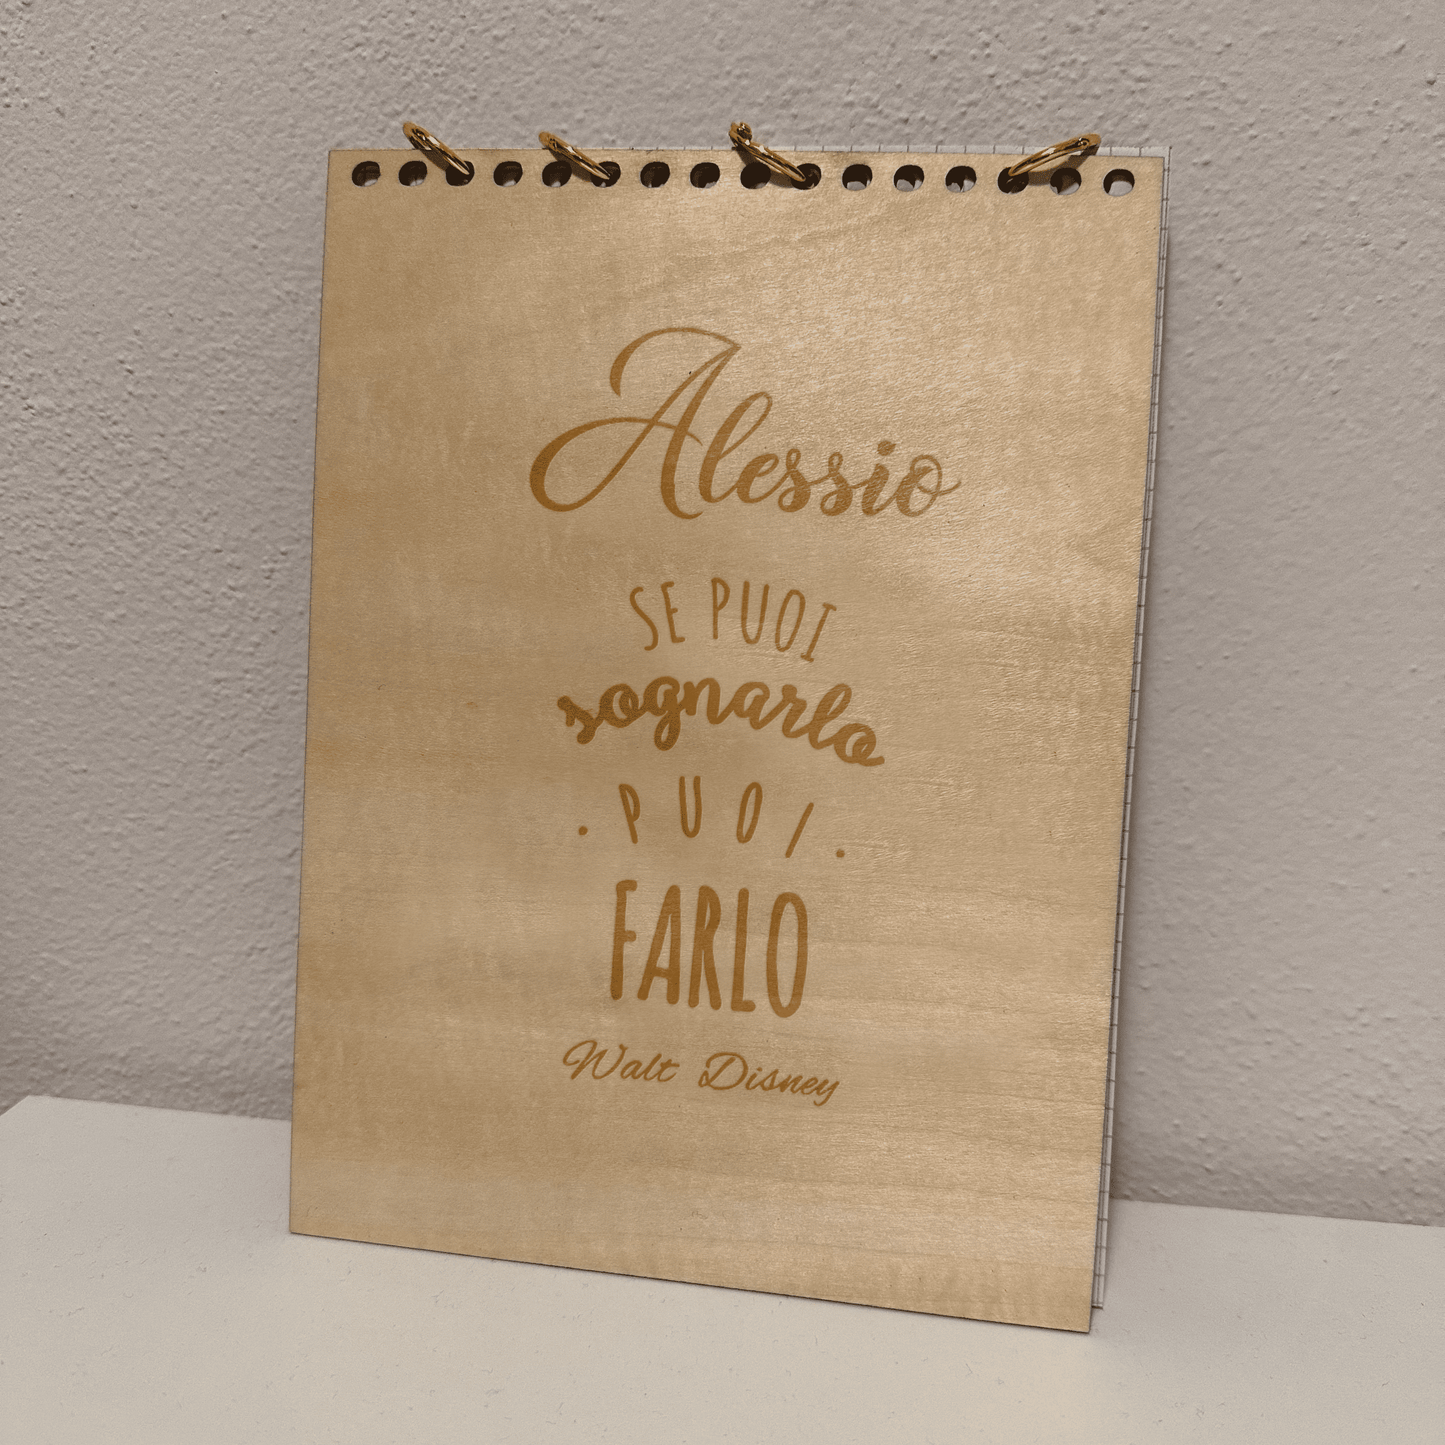 Alessio
SE PUOI
sognarlo
. PUOI .
FARLO
Walt Disney